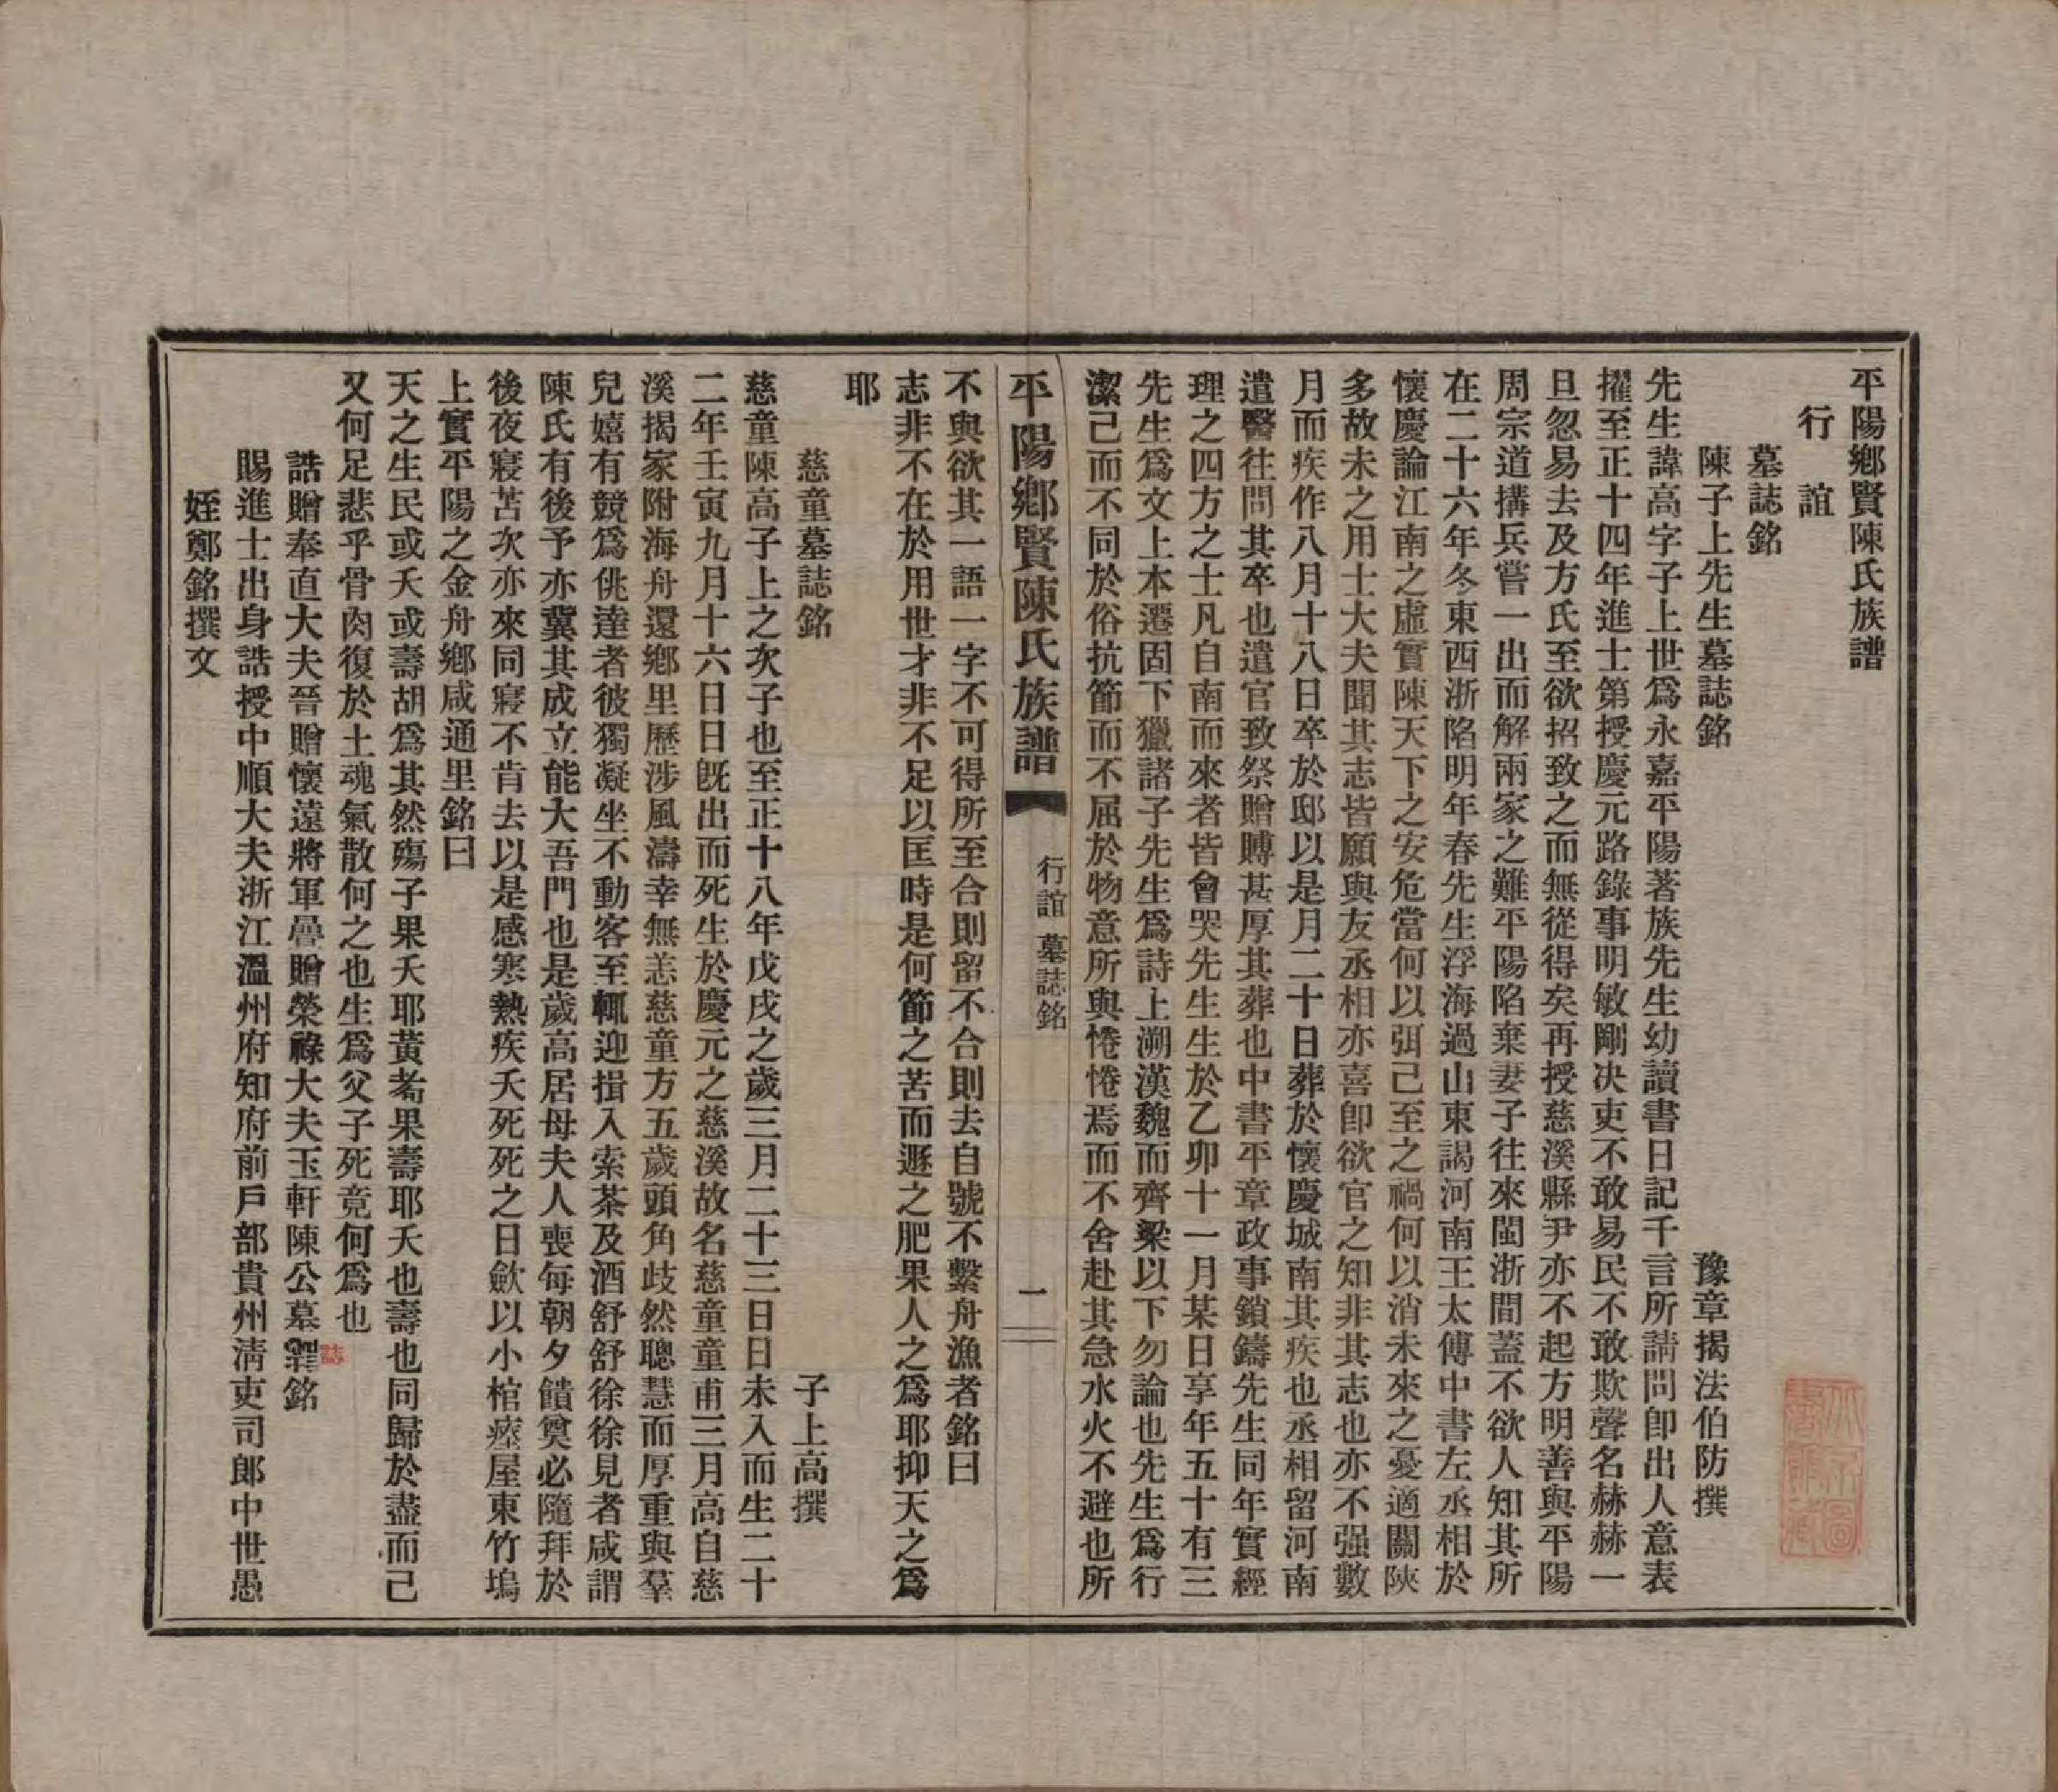 平陽鄉賢陳氏族譜
行誼
墓誌銘
陳子上先生墓誌銘　豫章揭汯伯防撰
先生諱高字子上世爲永嘉平陽著族先生幼讀書日記千言所請問卽出人意表
擢至正十四年進士第授慶元路錄事明敏剛决吏不敢易民不敢欺聲名赫赫一
旦忽易去及方氏至欲招致之而無從得矣再授慈溪縣尹亦不起方明善與平陽
周宗道搆兵嘗一出而解兩家之難平陽陷棄妻子往來閩浙間蓋不欲人知其所
在二十六年冬東西浙陷明年春先生浮海過山東謁河南王太傅中書左丞相於
懷慶論江南之虛實陳天下之安危當何以弭己至之禍何以消未來之憂適關陝
多故未之用士大夫聞其志皆願與友丞相亦喜卽欲官之知非其志也亦不强數
月而疾作八月十八日卒於邸以是月二十日葬於懷慶城南其疾也丞相留河南
遣醫往問其卒也遣官致祭贈賻甚厚其葬也中書平章政事鎖鑄先生同年實經
理之四方之士凡自南而來者皆會哭先生生於乙卯十一月某日享年五十有三
先生爲文上本遷固下獵諸子先生爲詩上溯漢魏而齊梁以下勿論也先生爲行
潔己而不同於俗抗節而不屈於物意所與惓惓焉而不舍赴其急水火不避也所
平陽鄉賢陳氏族譜　行誼　墓誌銘　一
不與欲其一語一字不可得所至合則留不合則去自號不繫舟漁者銘曰
志非不在於用世才非不足以匡時是何節之苦而遯之肥果人之爲耶抑天之爲
耶
慈童墓誌銘　子上高撰
慈童陳高子上之次子也至正十八年戊戌之歲三月二十三日日未入而生二十
二年壬寅九月十六日日旣出而死生於慶元之慈溪故名慈童童甫三月高自慈
溪揭家附海舟還鄉里歷涉風濤幸無恙慈童方五歲頭角歧然聰慧而厚重與羣
兒嬉有競爲佻達者彼獨凝坐不動客至輒迎揖入索茶及酒舒舒徐徐見者咸謂
陳氏有後予亦冀其成立能大吾門也是歲高居母夫人喪每朝夕饋奠必隨拜於
後夜寢苦次亦來同寢不肯去以是感寒熱疾夭死死之日歛以小棺瘞屋東竹塢
上實平陽之金舟鄉咸通里銘曰
天之生民或夭或壽胡爲其然殤子果夭耶黃耉果壽耶夭也壽也同歸於盡而己
又何足悲乎骨肉復於土魂氣散何之也生爲父子死竟何爲也
誥贈奉直大夫晉贈懷遠將軍曡贈榮祿大夫玉軒陳公墓誌銘
賜進士出身誥授中順大夫浙江溫州府知府前戶部貴州淸吏司郎中世愚
姪鄭銘撰文